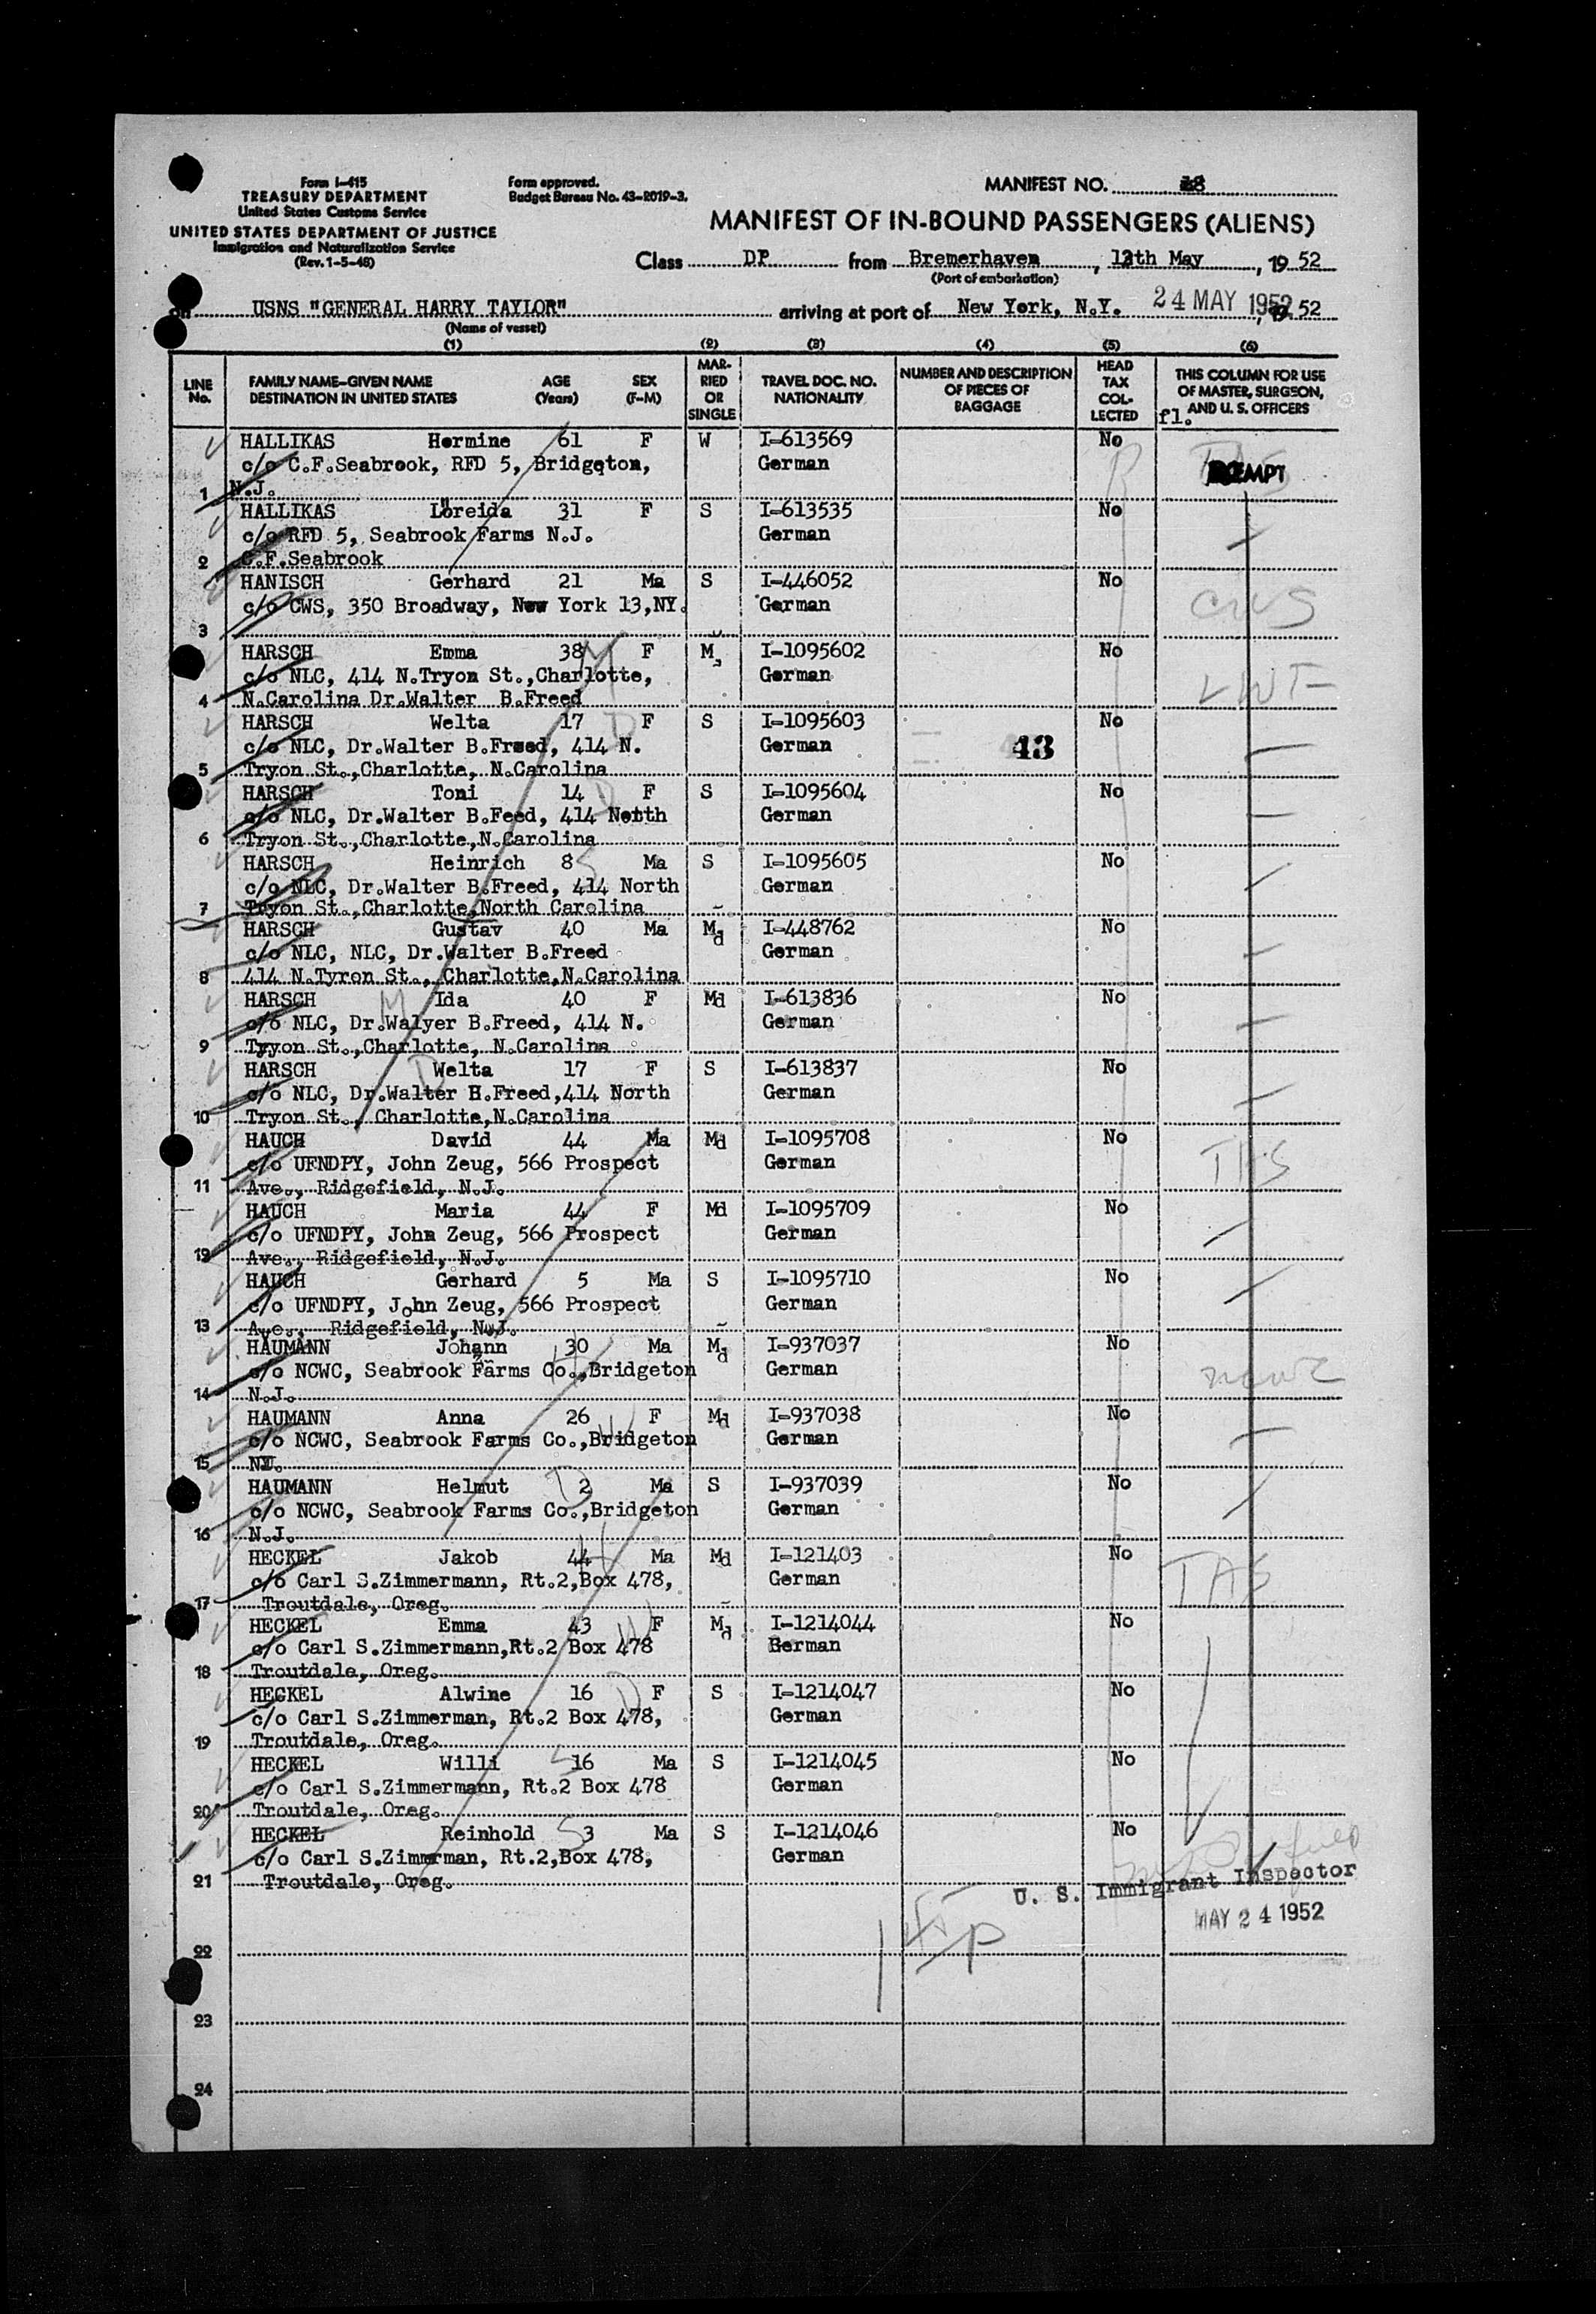 Form I-415
TREASURY DEPARTMENT
United States Customs Service
UNITED STATES DEPARTMENT OF JUSTICE
Immigration and Naturalization Service
(Rev. 1-5-48)
Form approved.
Budget Bureau No. 43-R019-3.
MANIFEST NO.
MANIFEST OF IN-BOUND PASSENGERS (ALIENS)
Class DP from Bremerhaven, 12th May, 19 52
(Port of embarkation)
on USNS "GENERAL HARRY TAYLOR" arriving at port of New York, N.Y. 24 MAY 1952, 19 52
(Name of vessel)
(1) (2) (3) (4) (5) (6)
LINE No. FAMILY NAME–GIVEN NAME DESTINATION IN UNITED STATES AGE (Years) SEX (F–M) MARRIED OR SINGLE TRAVEL DOC. NO. NATIONALITY NUMBER AND DESCRIPTION OF PIECES OF BAGGAGE HEAD TAX COLLECTED THIS COLUMN FOR USE OF MASTER, SURGEON, AND U. S. OFFICERS
fl.
HALLIKAS Hermine 61 F W I-613569 No
c/o C.F.Seabrook, RFD 5, Bridgeton, German EXEMPT
1 N.J.
HALLIKAS Loreida 31 F S I-613535 No
c/o RFD 5, Seabrook Farms N.J. German
2 C.F.Seabrook
HANISCH Gerhard 21 Ma S I-446052 No
c/o CWS, 350 Broadway, New York 13,NY. German CWS
3
HARSCH Emma 38 F M I-1095602 No
c/o NLC, 414 N.Tryon St.,Charlotte, German
4 N.Carolina Dr.Walter B.Freed
HARSCH Welta 17 F S I-1095603 No
c/o NLC, Dr.Walter B.Freed, 414 N. German 43
5 Tryon St.,Charlotte, N.Carolina
HARSCH Toni 14 F S I-1095604 No
c/o NLC, Dr.Walter B.Feed, 414 North German
6 Tryon St.,Charlotte,N.Carolina
HARSCH Heinrich 8 Ma S I-1095605 No
c/o NLC, Dr.Walter B.Freed, 414 North German
7 Tryon St.,Charlotte,North Carolina
HARSCH Gustav 40 Ma Md I-448762 No
c/o NLC, NLC, Dr.Walter B.Freed German
8 414 N.Tyron St., Charlotte,N.Carolina
HARSCH Ida 40 F Md I-613836 No
c/o NLC, Dr.Walyer B.Freed, 414 N. German
9 Tryon St.,Charlotte, N.Carolina
HARSCH Welta 17 F S I-613837 No
c/o NLC, Dr.Walter H.Freed,414 North German
10 Tryon St., Charlotte,N.Carolina
HAUCH David 44 Ma Md I-1095708 No
c/o UFNDPY, John Zeug, 566 Prospect German
11 Ave., Ridgefield, N.J.
HAUCH Maria 44 F Md I-1095709 No
c/o UFNDPY, John Zeug, 566 Prospect German
12 Ave., Ridgefield, N.J.
HAUCH Gerhard 5 Ma S I-1095710 No
c/o UFNDPY, John Zeug, 566 Prospect German
13 Ave., Ridgefield, N.J.
HAUMANN Johann 30 Ma Md I-937037 No
c/o NCWC, Seabrook Farms Co.,Bridgeton German NCWC
14 N.J.
HAUMANN Anna 26 F Md I-937038 No
c/o NCWC, Seabrook Farms Co.,Bridgeton German
15 NJ.
HAUMANN Helmut 2 Ma S I-937039 No
c/o NCWC, Seabrook Farms Co.,Bridgeton German
16 N.J.
HECKEL Jakob 44 Ma Md I-121403 No
c/o Carl S.Zimmermann, Rt.2,Box 478, German
17 Troutdale, Oreg.
HECKEL Emma 43 F Md I-1214044 No
c/o Carl S.Zimmermann,Rt.2 Box 478 German
18 Troutdale, Oreg.
HECKEL Alwine 16 F S I-1214047 No
c/o Carl S.Zimmerman, Rt.2 Box 478, German
19 Troutdale, Oreg.
HECKEL Willi 16 Ma S I-1214045 No
c/o Carl S.Zimmermann, Rt.2 Box 478 German
20 Troutdale, Oreg.
HECKEL Reinhold 3 Ma S I-1214046 No
c/o Carl S.Zimmerman, Rt.2,Box 478, German
21 Troutdale, Oreg.
U. S. Immigrant Inspector
MAY 24 1952
22
23
24